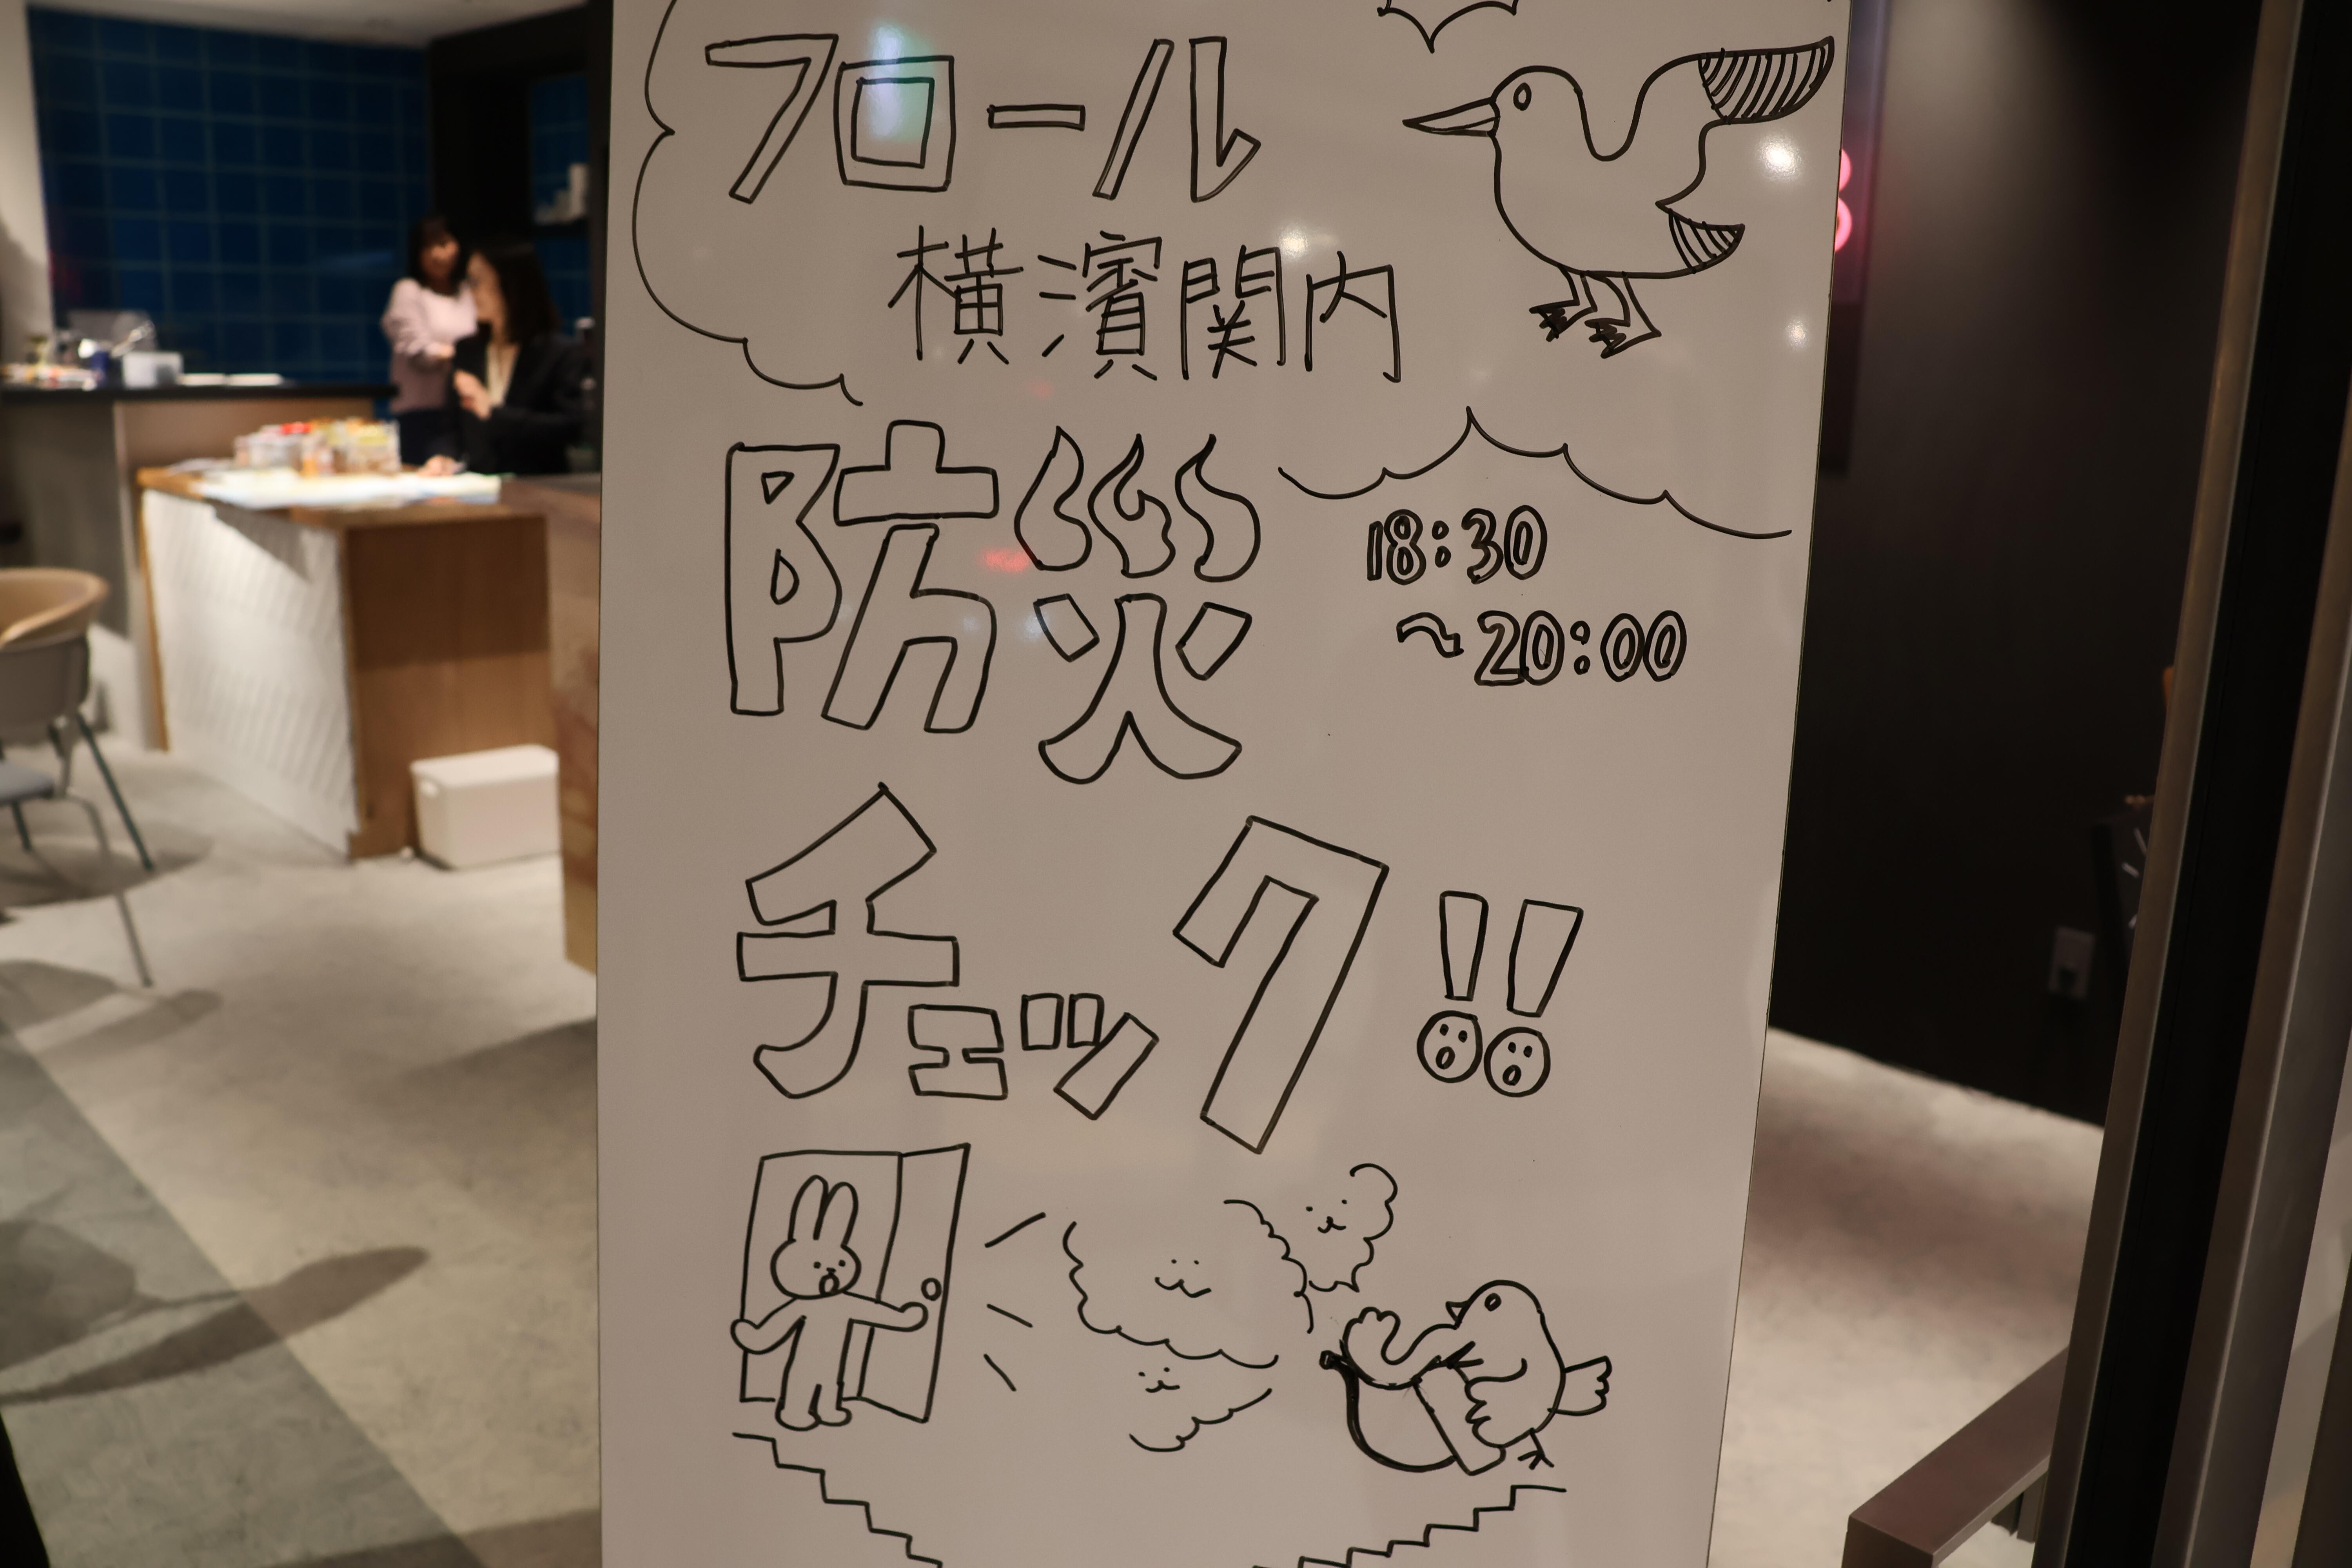 フロール
横濱関内
防災
18:30
~20:00
チェック!!